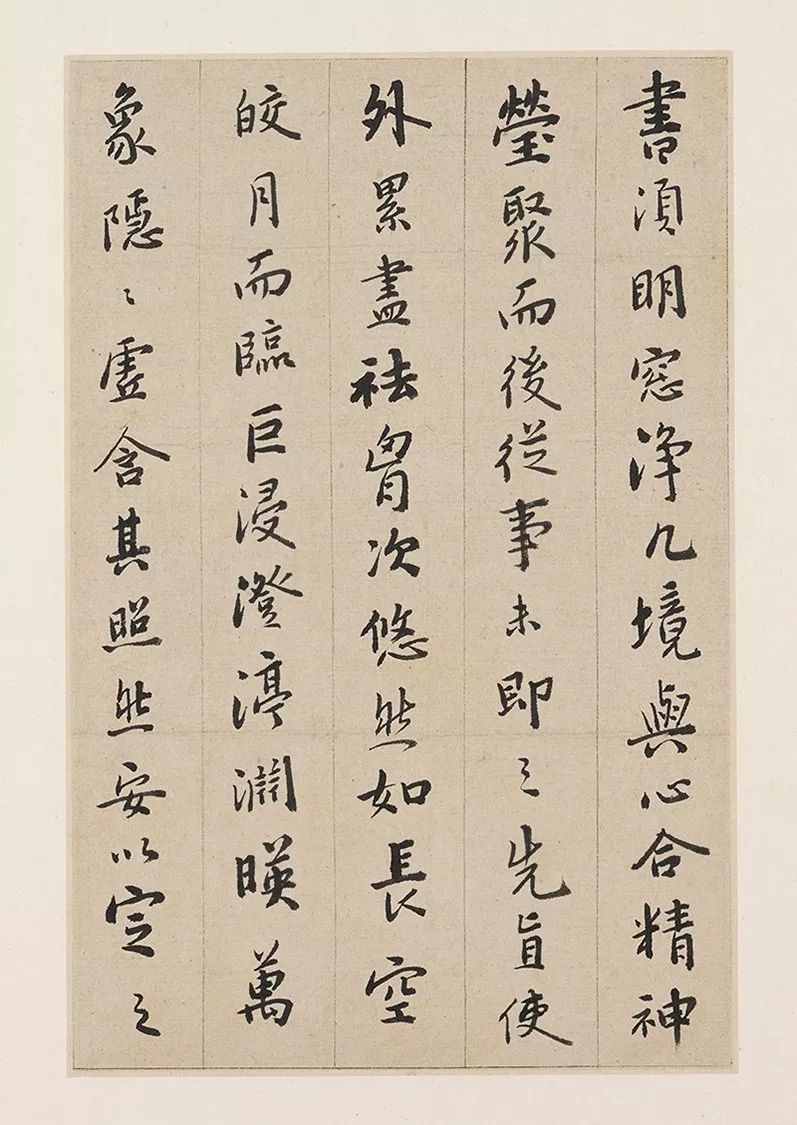 書須明窓浄几境與心合精神
瑩聚而後從事未即之先冝使
外累盡袪胷次悠然如長空
皎月而臨巨浸澄渟瀾暎萬
象隱〻虛含其照然安以定之